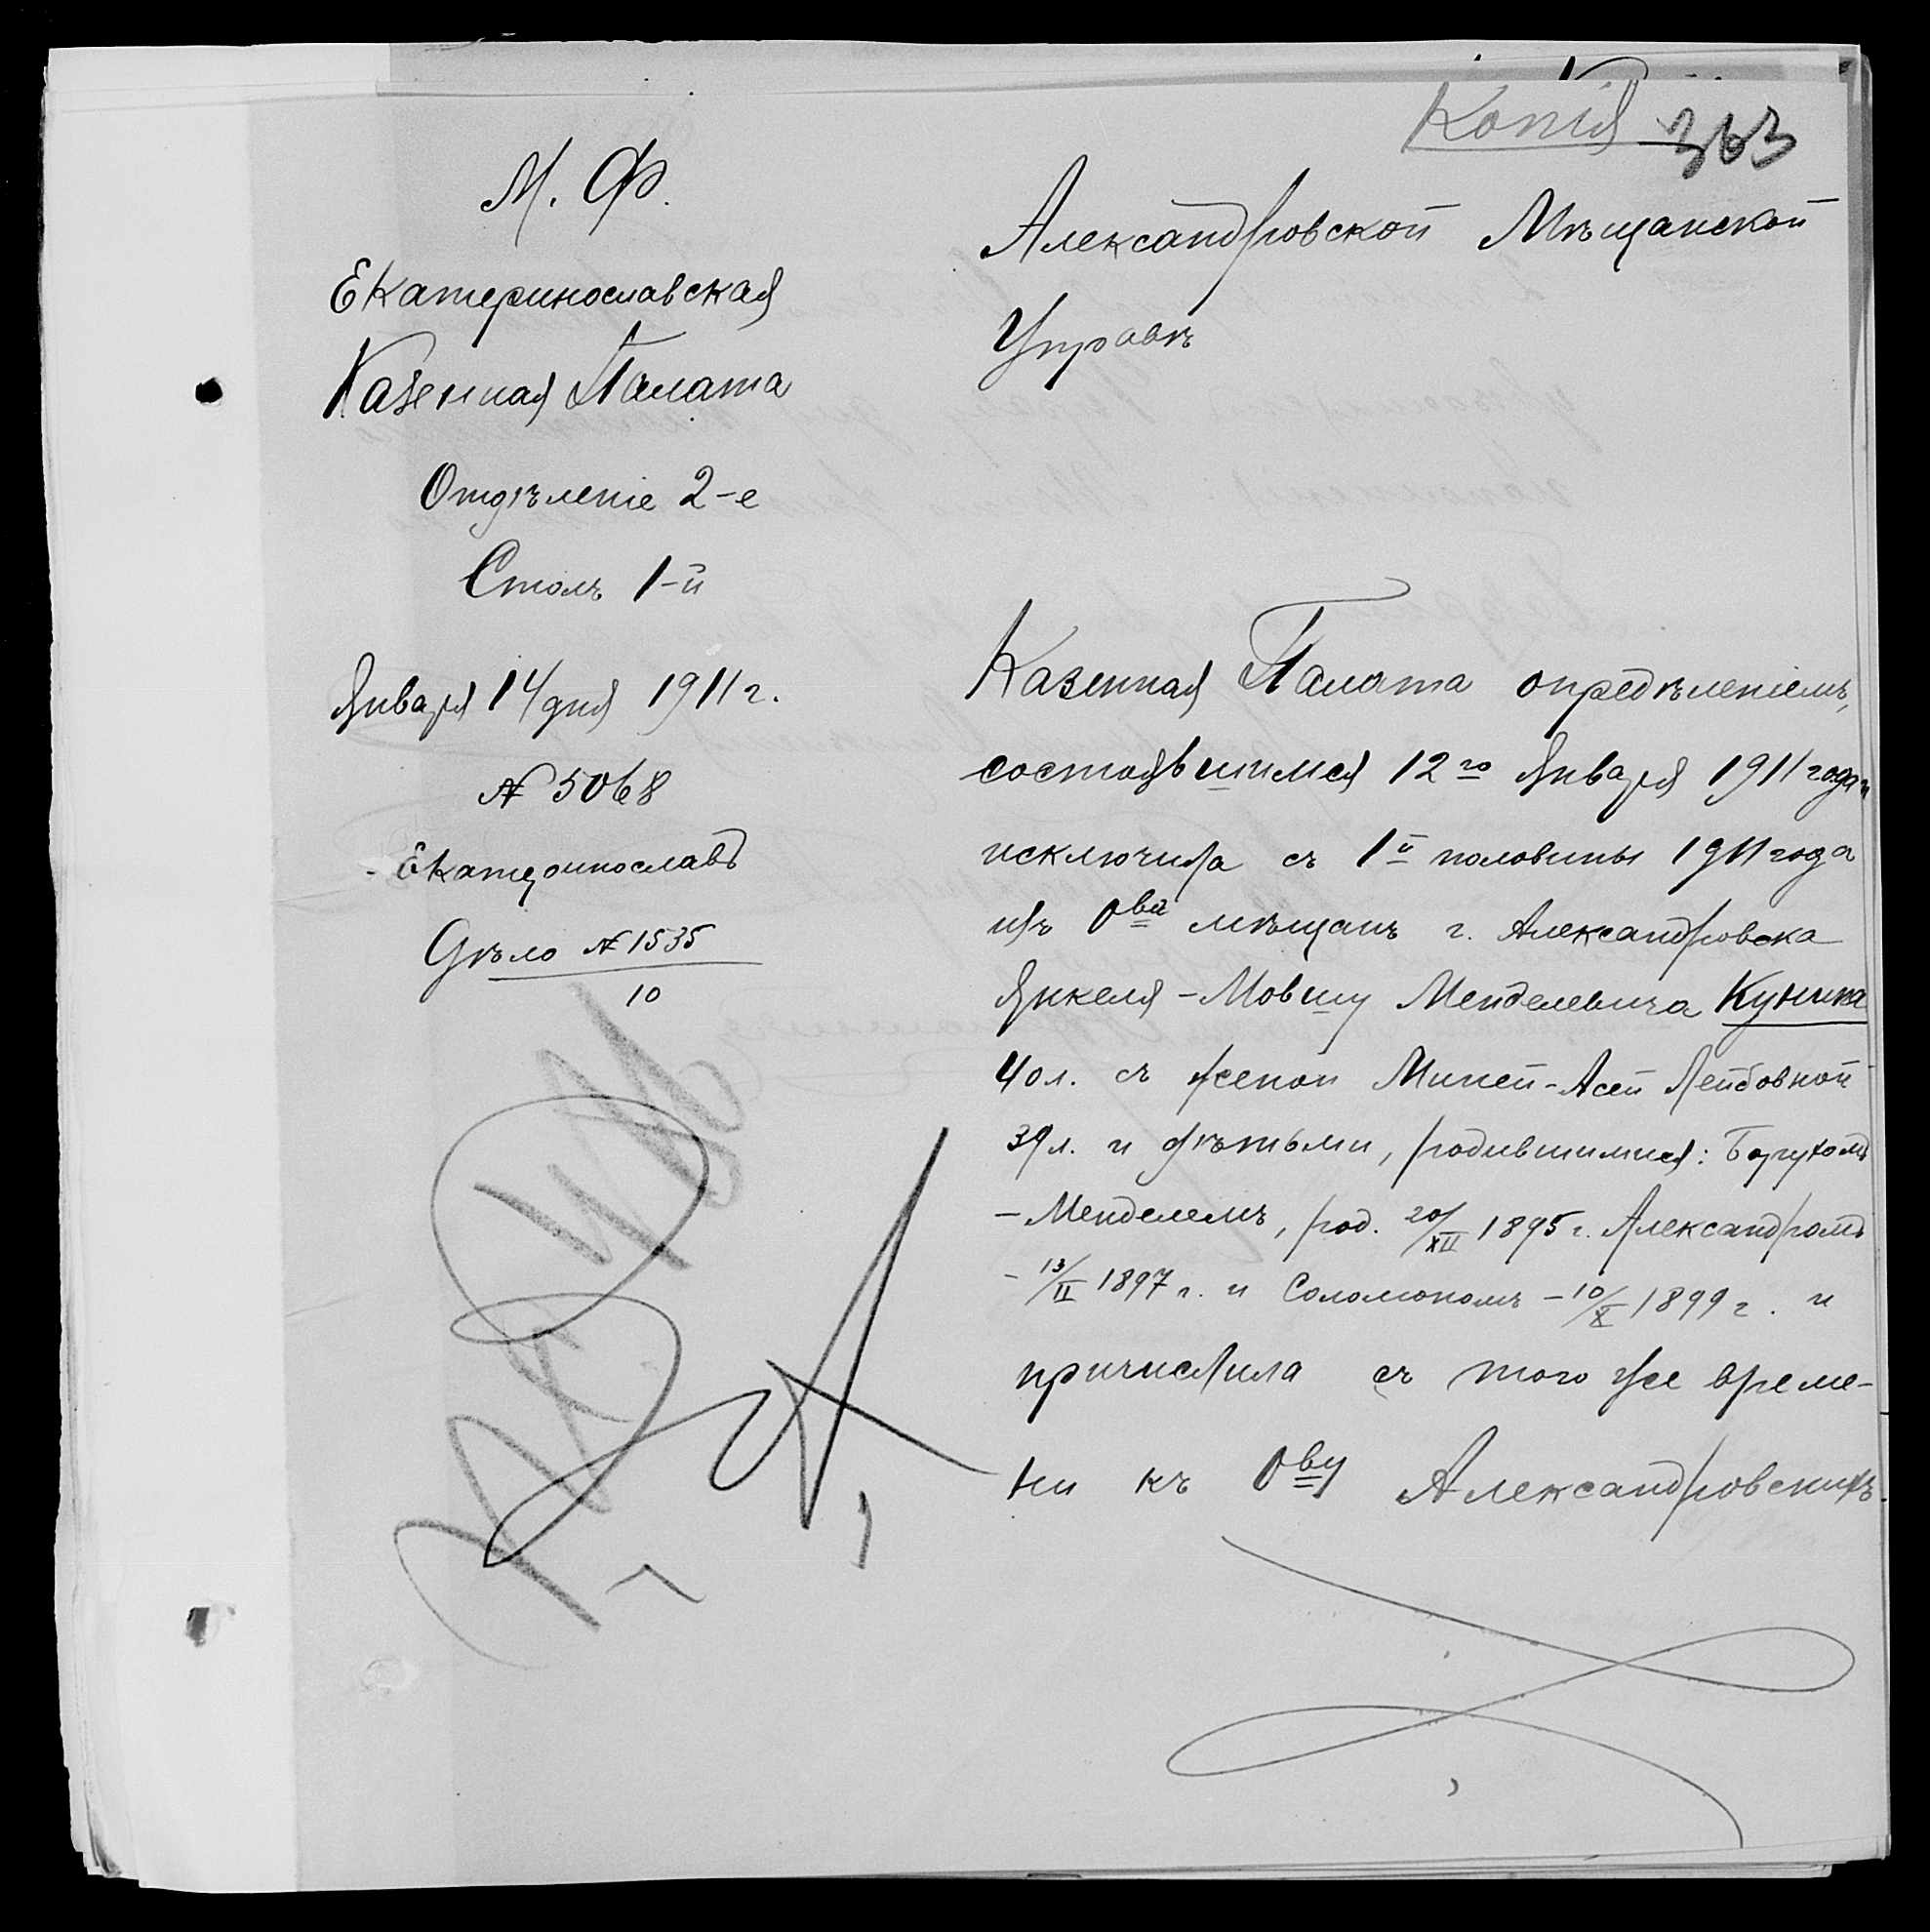 Копія
363
М. Ф.
Екатеринославская
Казенная Палата
Отдѣленіе 2-е
Столъ 1-й
Января 14 дня 1911 г.
№ 5068
Екатеринославъ
Дѣло № 1535
10
Александровской Мѣщанской
Управѣ
Казенная Палата опредѣленіемъ,
состоявшимся 12го Января 1911 года,
исключила съ 1й половины 1911 года
изъ Ова мѣщанъ г. Александровска
Янкеля-Мовшу Менделевича Куника
40 л. съ женой Миней-Асей Лейбовной
39 л. и дѣтьми, родившимися: Борухомъ
-Менделемъ, род. 20/XII 1895 г. Александромъ
- 13/II 1897 г. и Соломономъ - 10/X 1899 г. и
причислила съ того же време-
ни къ Ову Александровскихъ